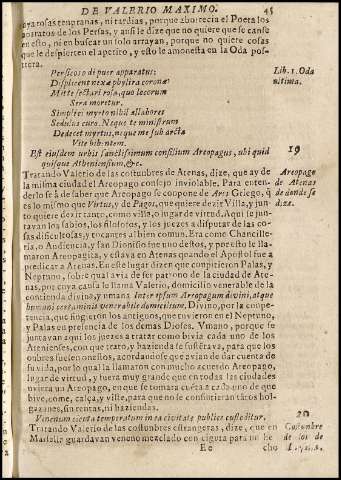 DE VALERIO MAXIMO. 45
rya rosas tempranas, ni tardias, porque aborrecia el Poeta los
aparatos de los Persas, y ansi le dize que no quiere que se canse
en esto, ni en buscar un solo arrayan, porque no quiere cosas
que le despierten el apetito, y esto le amonesta en la Oda pos-
trera.
Persicos odi puer apparatus:
Displicent nexæ phylira coronæ
Mitte sectari rosa, quo locorum
Sera moretur.
Simplici myrto nihil allabores
Sedulus curo. Neque te ministrum
Dedecet myrtus, neque me sub arcta
Vite bibentem.
Lib. 1. Oda
ultima.
Est eiusdem urbis sanctissimum consilium Areopagus, ubi quid
quisque Atheniensium, &c.
19
Tratando Valerio de las costumbres de Atenas, dize, que ay de
la misma ciudad el Areopago consejo inviolable. Para enten-
derlo se à de saber que Areopago se compone de Ares Griego, q̃
es lo mismo que Virtus, y de Pagos, que quiere dezir Villa, y jun-
to quiere dezir tanto, como villa, o lugar de virtud. Aqui se jun-
tavan los sabios, los filosofos, y los juezes a disputar de las co-
sas dificultosas, y tocantes al bien comun. Era como Chancille-
ria, o Audiencia, y san Dionisio fue uno destos, y por esto le lla-
maron Areopagita, y estava en Atenas quando el Apostol fue a
predicar a Atenas. En este lugar dizen que compitieron Palas, y
Neptuno, sobre qual avia de ser patrono de la ciudad de Ate-
nas, por cuya causa le llama Valerio, domicilio venerable de la
contienda divina, y umana
Areopago
de Atenas
de donde se
dize.
Divino, por la compe-
tencia, que fingieron los antiguos, que tuvieron en el Neptuno,
y Palas en presencia de los demas Dioses. Vmano, porque se
juntavan aqui los juezes a tratar como bivia cada uno de los
Atenienses, con que trato, y hazienda se sustentava, para que los
ombres fuessen onestos, acordandose que avian de dar cuenta de
su vida, por lo qual la llamaron con mucho acuerdo Areopago,
lugar de virtud, y fuera muy grande que en todas las ciudades
uviera un Areopago, en que se tomara cuēta a cada uno de que
bive, come, calça, y viste, para que no se consintieran tātos hol-
gazanes, sin rentas, ni haziendas.
Venenum cicuta temperatum in ea civitate publice custoditur.
20
Tratando Valerio de las costumbres estrangeras, dize, que en
Marsella guardavan veneno mezclado con cigura para un he
Costumbre
de los de
Ee cho